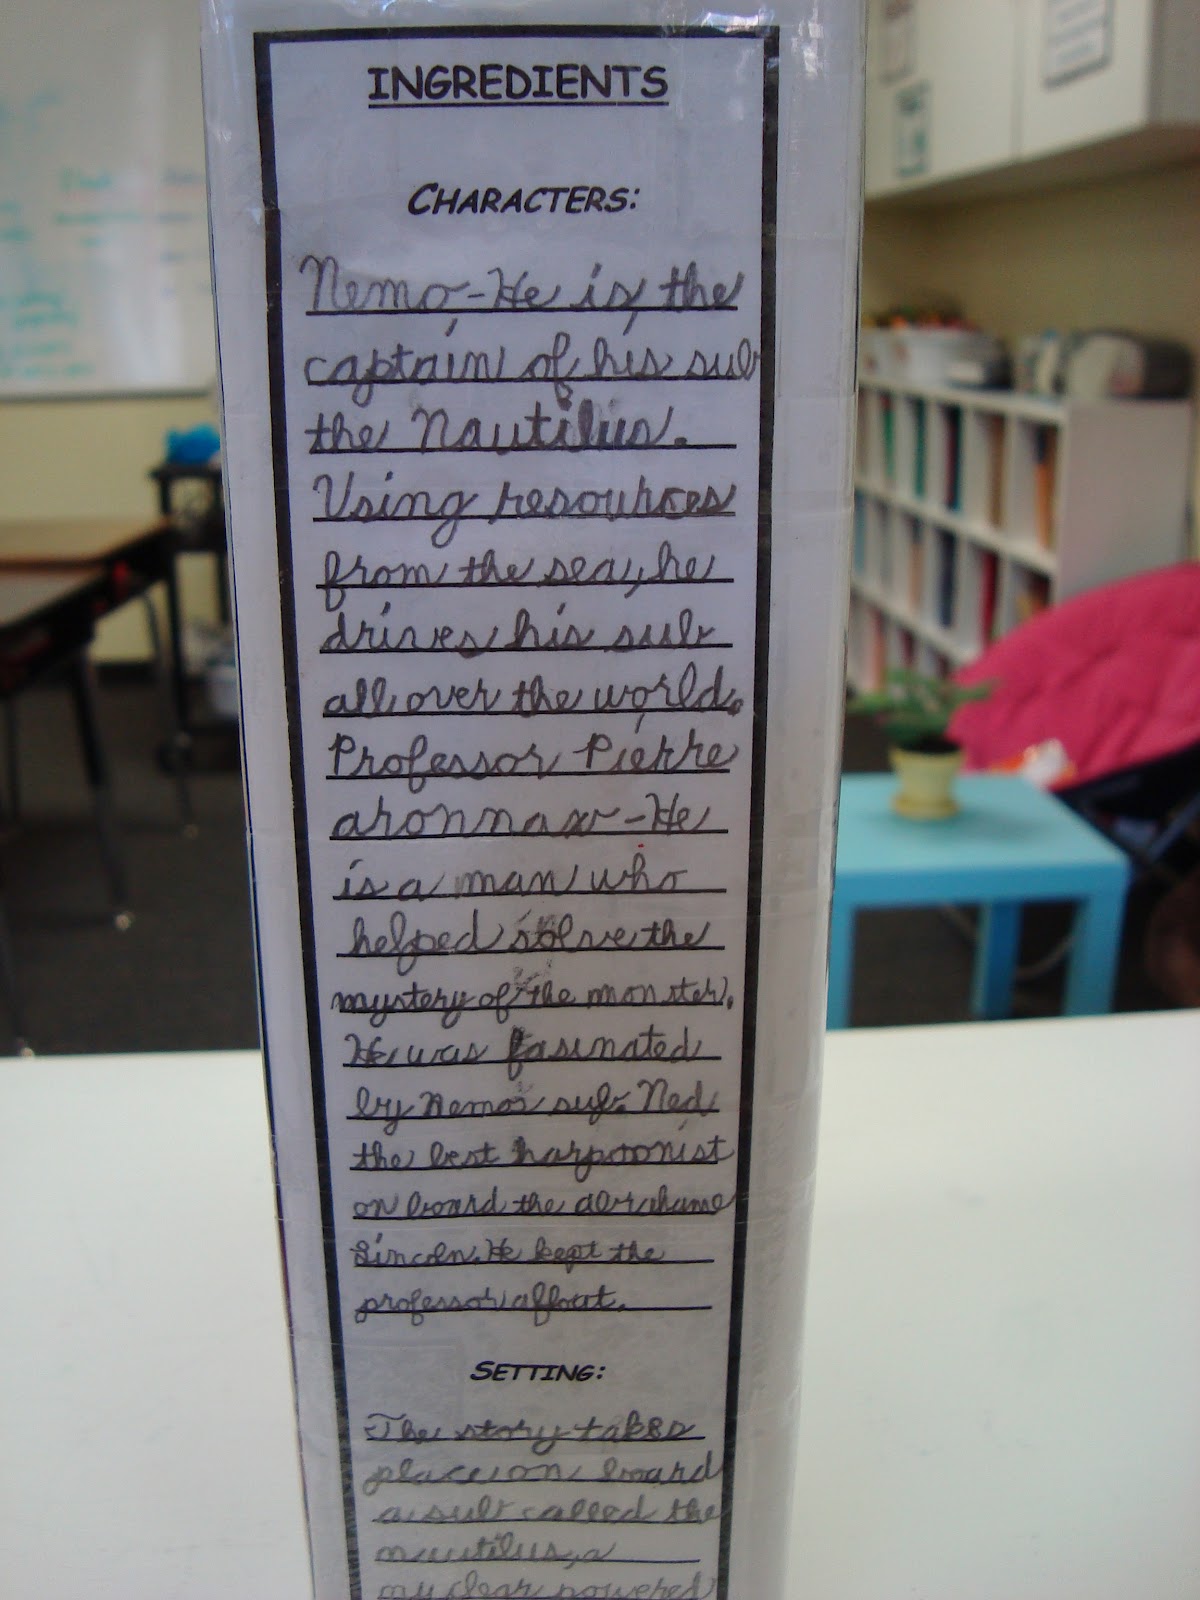 INGREDIENTS
CHARACTERS:
Nemo-He is the
captain of his sub
the Nautilus.
Using resources
from the sea, he
drives his sub
all over the world.
Professor Pierre
aronnax-He
is a man who
helped solve the
mystery of the monster.
He was fasinated
by Nemos sub. Ned
the best harpoonist
on board the abrahame
Lincoln. He kept the
professor afloat.
SETTING:
The story takes
place on board
a sub called the
nautilus, a
nuclear powered